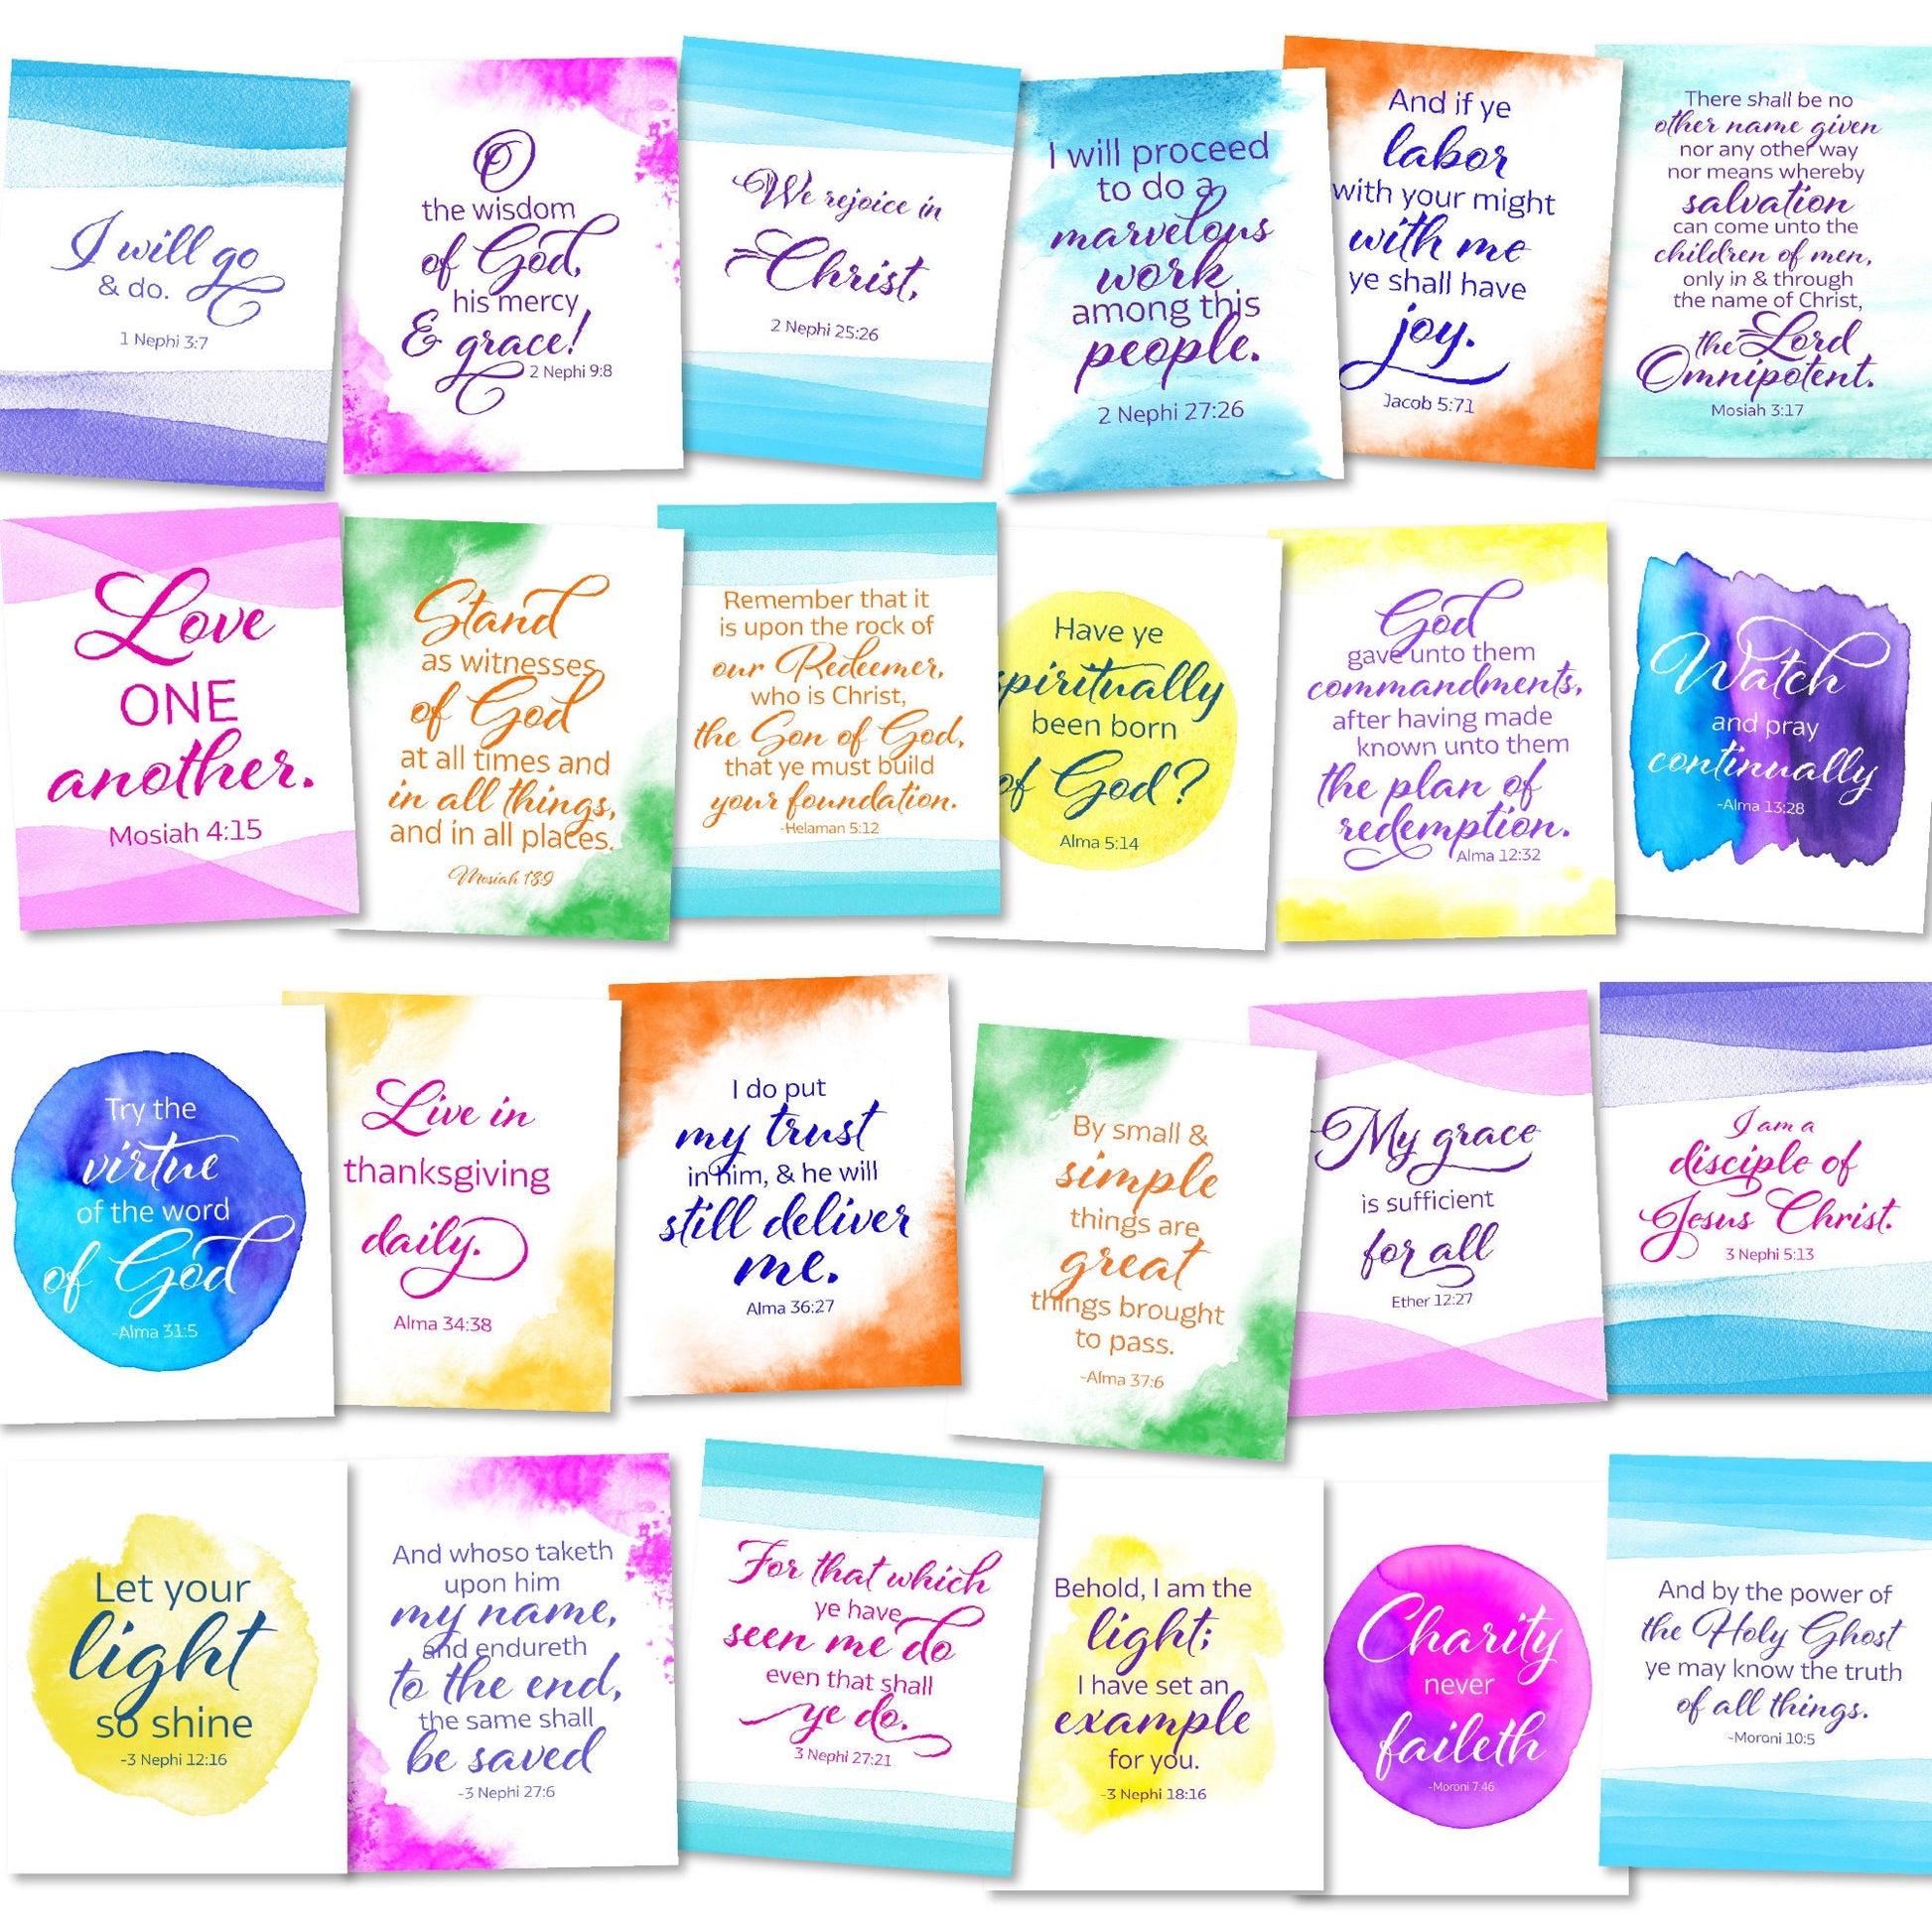 I will go
& do.
1 Nephi 3:7
O
the wisdom
of God,
his mercy
& grace!
2 Nephi 9:8
We rejoice in
Christ,
2 Nephi 25:26
I will proceed
to do a
marvelous
work
among this
people.
2 Nephi 27:26
And if ye
labor
with your might
with me
ye shall have
joy.
Jacob 5:71
There shall be no
other name given
nor any other way
nor means whereby
salvation
can come unto the
children of men,
only in & through
the name of Christ,
the Lord
Omnipotent.
Mosiah 3:17
Love
ONE
another.
Mosiah 4:15
Stand
as witnesses
of God
at all times and
in all things,
and in all places.
Mosiah 18:9
Remember that it
is upon the rock of
our Redeemer,
who is Christ,
the Son of God,
that ye must build
your foundation.
-Helaman 5:12
Have ye
spiritually
been born
of God?
Alma 5:14
God
gave unto them
commandments,
after having made
known unto them
the plan of
redemption.
Alma 12:32
Watch
and pray
continually
-Alma 13:28
Try the
virtue
of the word
of God
-Alma 31:5
Live in
thanksgiving
daily.
Alma 34:38
I do put
my trust
in him, & he will
still deliver
me.
Alma 36:27
By small &
simple
things are
great
things brought
to pass.
-Alma 37:6
My grace
is sufficient
for all
Ether 12:27
I am a
disciple of
Jesus Christ.
3 Nephi 5:13
Let your
light
so shine
-3 Nephi 12:16
And whoso taketh
upon him
my name,
and endureth
to the end,
the same shall
be saved
-3 Nephi 27:6
For that which
ye have
seen me do
even that shall
ye do.
3 Nephi 27:21
Behold, I am the
light;
I have set an
example
for you.
-3 Nephi 18:16
Charity
never
faileth
-Moroni 7:46
And by the power of
the Holy Ghost
ye may know the truth
of all things.
-Moroni 10:5